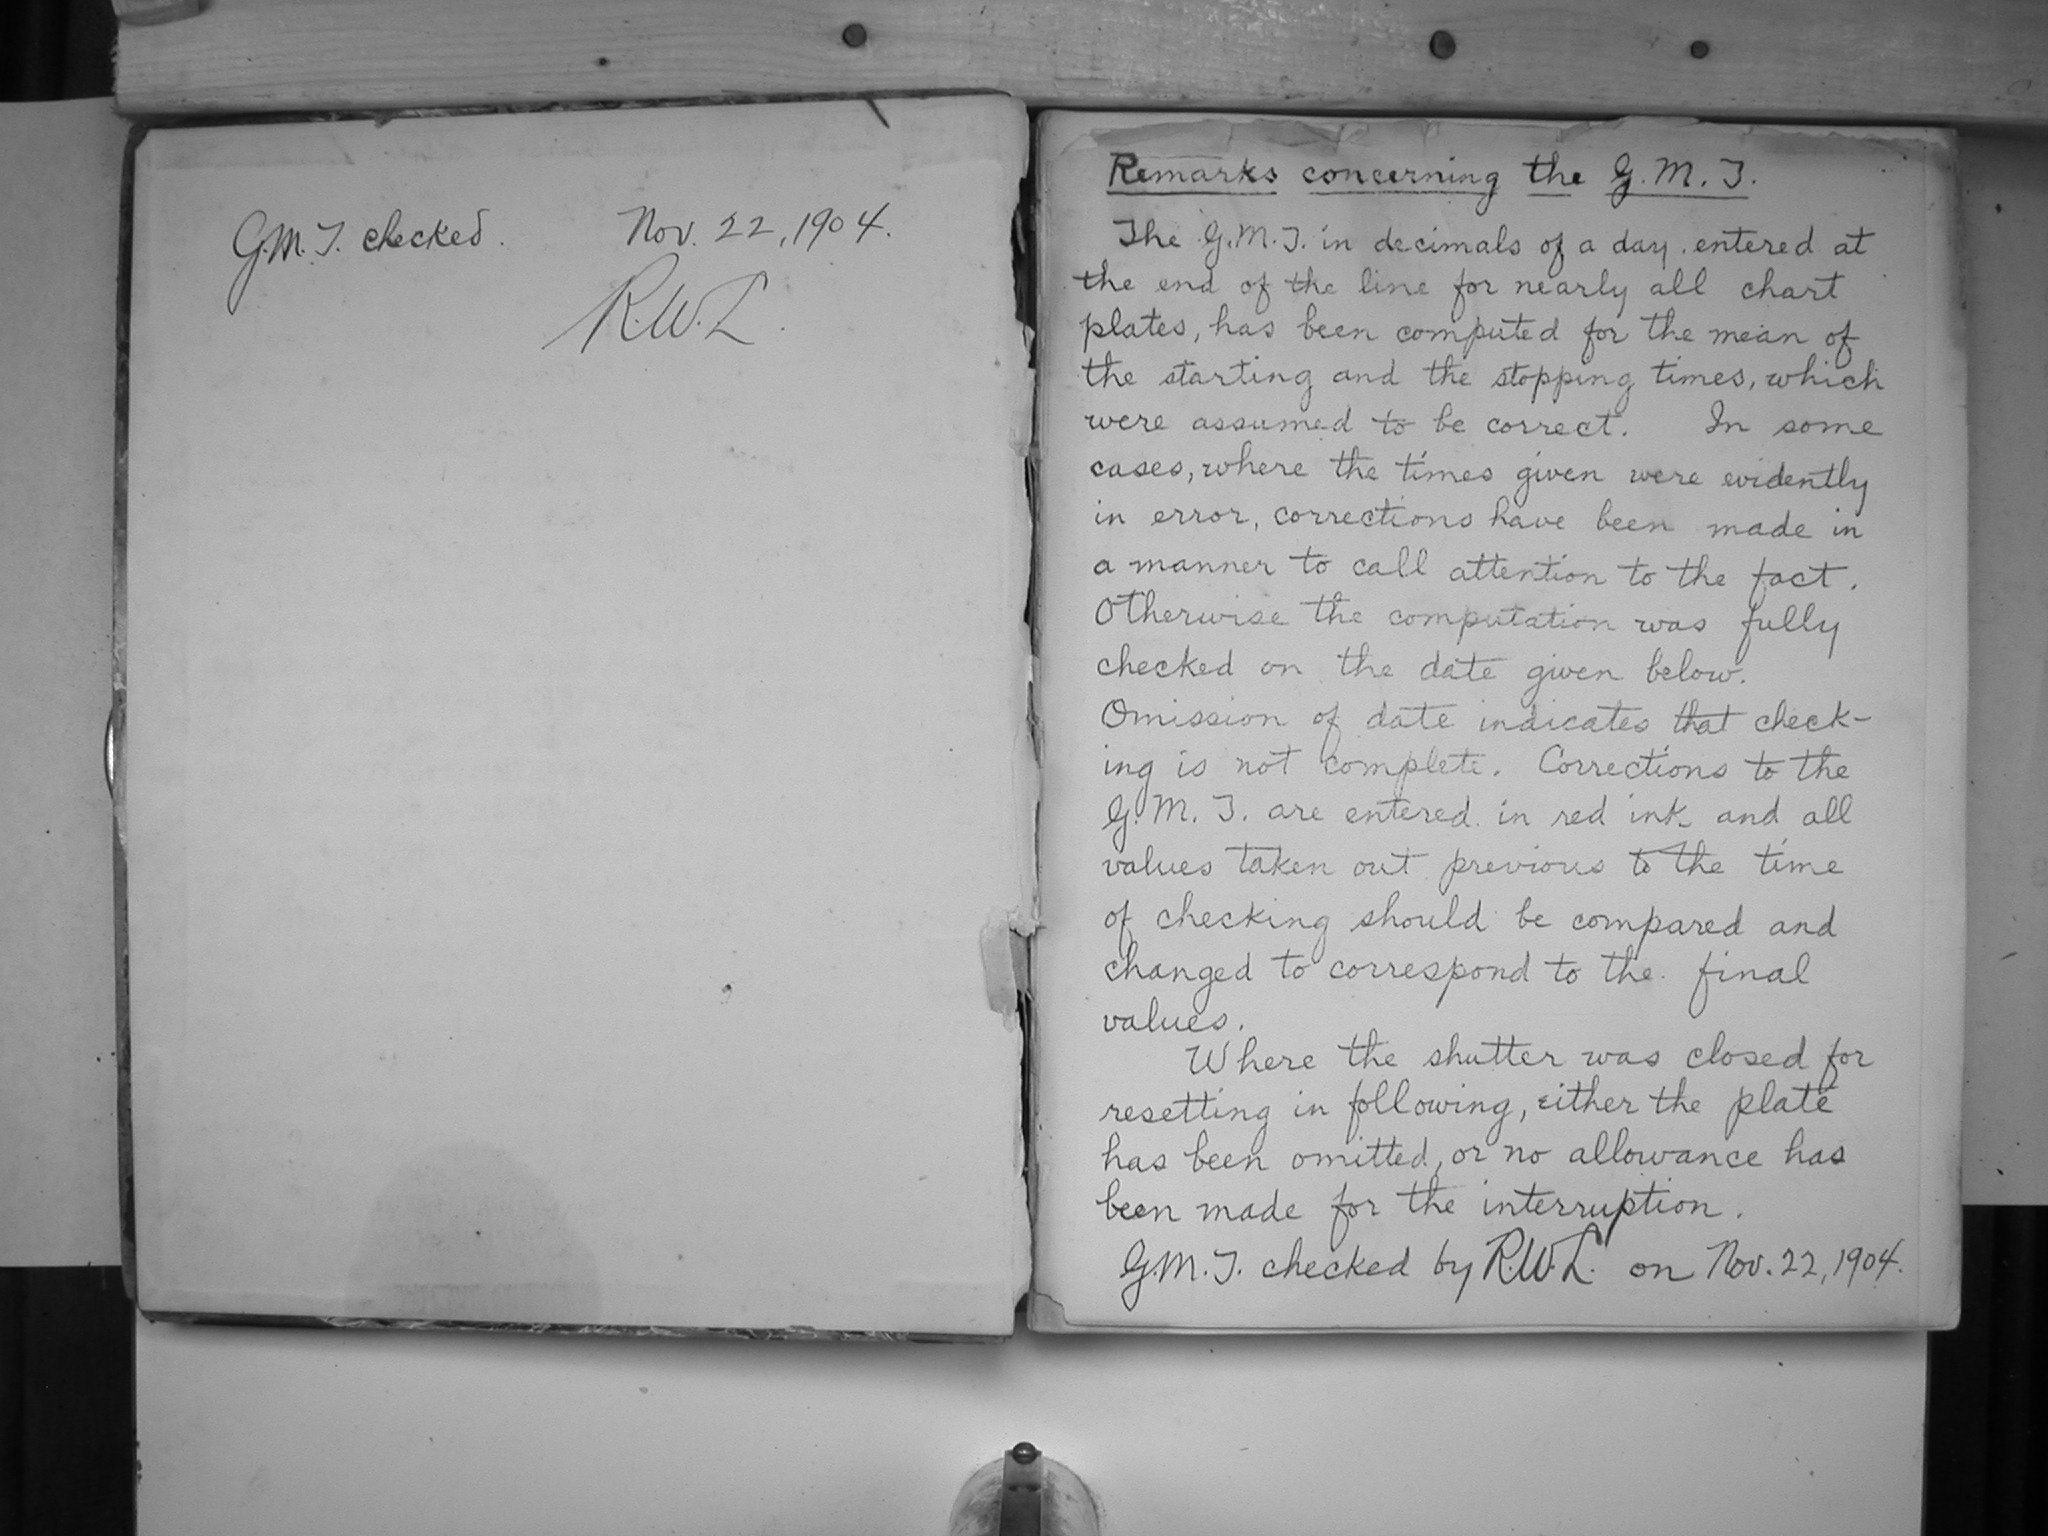 G.M.T. checked. Nov. 22, 1904.
R.W.L.
Remarks concerning the G.M.T.
The G.M.T. in decimals of a day entered at
the end of the line for nearly all chart
plates, has been computed for the mean of
the starting and the stopping times, which
were assumed to be correct. In some
cases, where the times given were evidently
in error, corrections have been made in
a manner to call attention to the fact.
Otherwise the computation was fully
checked on the date given below.
Omission of date indicates that check-
ing is not complete. Corrections to the
G.M.T. are entered in red ink and all
values taken out previous to the time
of checking should be compared and
changed to correspond to the final
values.
Where the shutter was closed for
resetting in following, either the plate
has been omitted, or no allowance has
been made for the interruption.
G.M.T. checked by R.W.L. on Nov. 22, 1904.